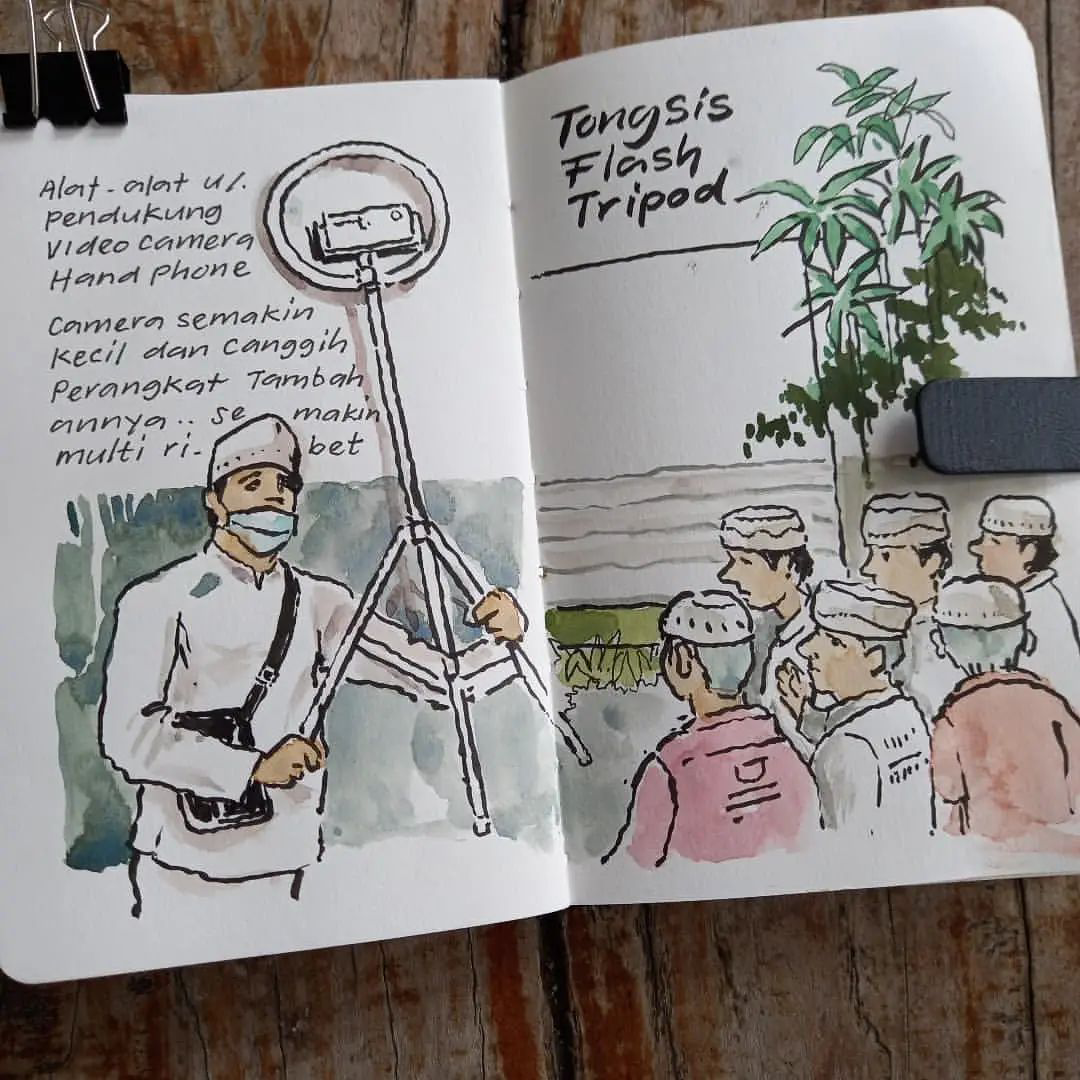 Alat-alat u/.
pendukung
video camera
Hand phone
Camera semakin
kecil dan canggih
Perangkat Tambah
annya.. se makin
multi ri- bet
Tongsis
Flash
Tripod